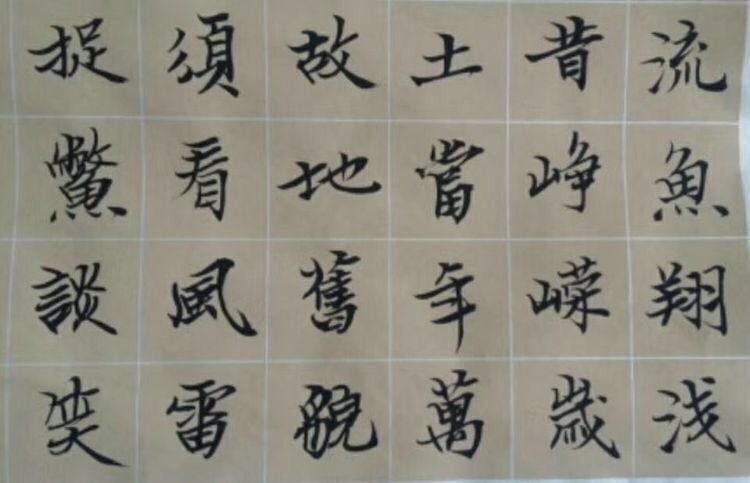 流魚翔浅
昔崢嶸歲
土當年萬
故地舊貌
須看風雷
捉鱉談笑